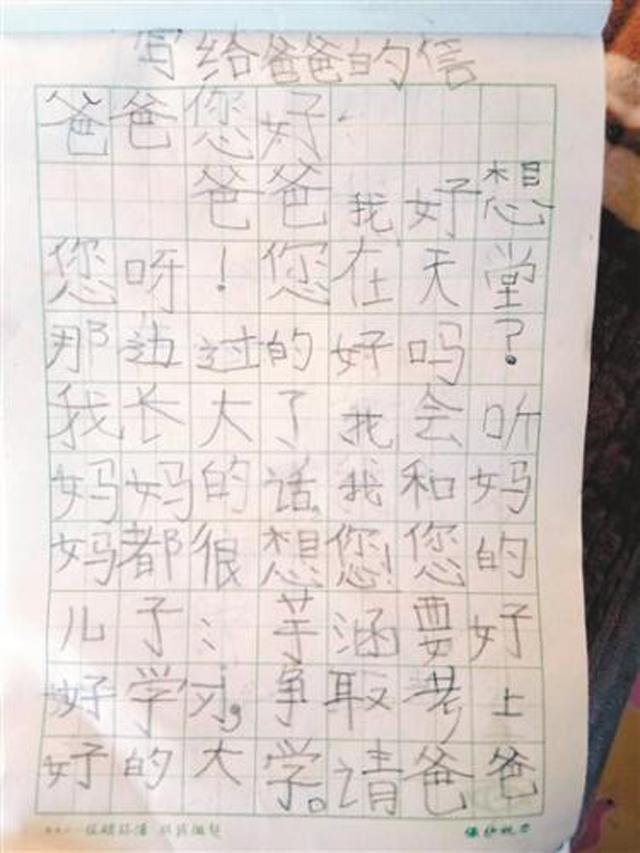 写给爸爸的信
爸爸您好:
爸爸我好想
您呀！您在天堂
那边过的好吗？
我长大了我会听
妈妈的话,我和妈
妈都很想您!您的
儿子:芋涵要好
好学习,争取考上
好的大学。请爸爸
保护视力